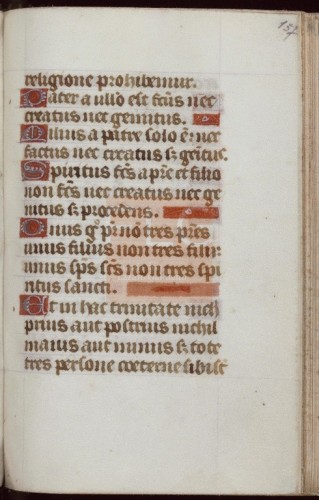 157
religione prohibemur.
Pater a ullo est fcus nec
creatus nec genitus.
Filius a patre solo e: nec
factus nec creatus s; geitus.
Spiritus scs a pre et filio
non fcs nec creatus nec ge
nitus s; procedens.
Unus g° pr no tres pres
unus filius non tres filii:
unus sps scs non tres spi
ritus sancti.
Et in hac trinitate nich
prius aut postrius nichil
maius aut minus s; tote
tres persone coeterne sibist